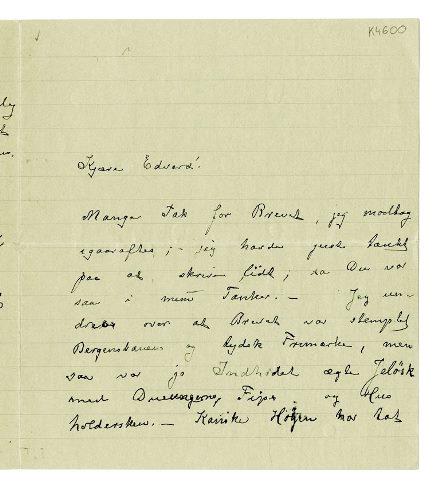 K4600
Kjære Edvard!
Mange Tak for Brevet, jeg modtog
igaaraftes; – jeg havde just tænkt
paa at skrive lidt; saa Du var
saa i mine Tanker. – Jeg un-
dredes over at Brevet var stemplet
Bergensbanen og tydsk Frimærke, men
saa var jo Indholdet ægte Jeløisk
med Dueungerne, Fips, og Hus
holdersken. – Kanske har tat